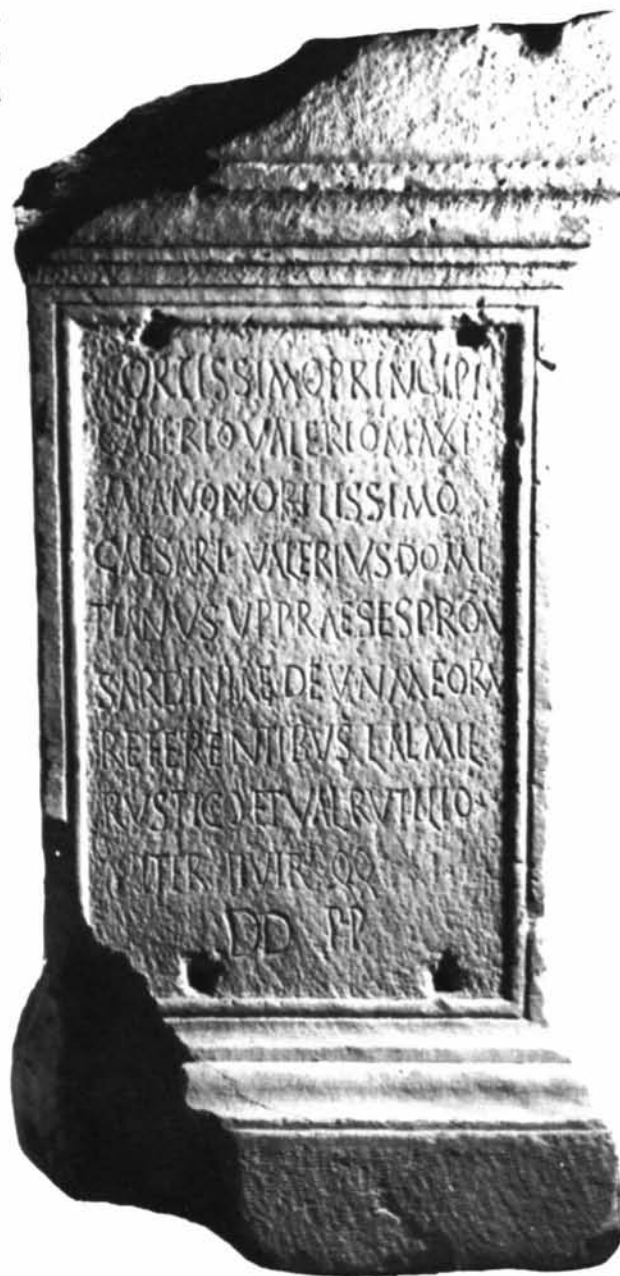 ORTISSIMO PRINCIPI
GALERIO VALERIO MAXI
MIANO NOBILISSIMO
CAESARI VALERIVS DOMI
TIANVS V P PRAESES PROV
SARDINIAE DEV N M EORV
REFERENTIBVS L AEMIL
RVSTICO ET VAL RVTILIO
ITER IIVIR QQ
DD PP